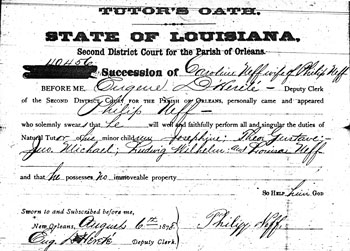 TUTOR'S OATH.
STATE OF LOUISIANA.
Second District Court for the Parish of Orleans.
40456 Succession of Caroline Neff wife of Philip Neff
BEFORE ME, Eugene Deputy Clerk
OF THE SECOND DISTRICT COURT FOR THE PARISH OF ORLEANS, personally came and appeared
Philip Neff
who solemnly swear that he will well and faithfully perform all and singular the duties of
Natural Tutor minor children Josephine; Theo Gustave;
Jno. Michael; Ludwig Wilhelm and Neff
and that he possesses no immoveable property
SO HELP him GOD
Sworn to and Subscribed before me,
New Orleans, August 6th 187
Philipp Neff.
Eug. Deputy Clerk.